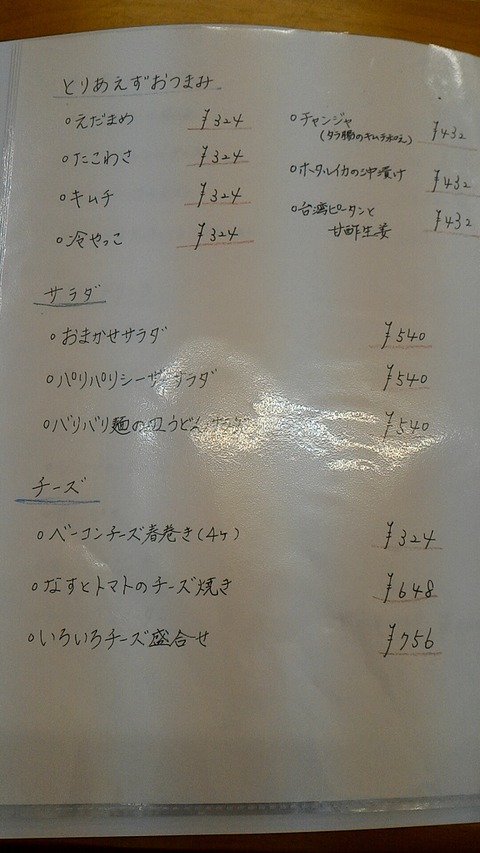 とりあえずおつまみ
○えだまめ ¥324
○たこわさ ¥324
○キムチ ¥324
○冷やっこ ¥324
○チャンジャ ¥432
(タラ腸のキムチ和え)
○ホタルイカの沖漬け ¥432
○台湾ピータンと ¥432
甘酢生姜
サラダ
○おまかせサラダ ¥540
○パリパリシーザーサラダ ¥540
○バリバリ麺の皿うどんサラダ ¥540
チーズ
○ベーコンチーズ春巻き(4ヶ) ¥324
○なすとトマトのチーズ焼き ¥648
○いろいろチーズ盛合せ ¥756